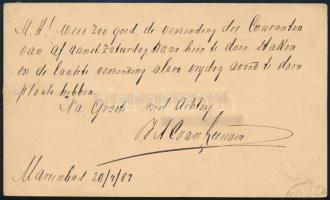 M. H! Wees zoo goed, de verzending der Couranten
van af aanst. Zaturdag naar hier te doen staken
en de laatste verzending alzoo vrydag avond te doen
plaats hebben.
Na Groete met Achting
van Leeuwen
Marienbad 20/7/87